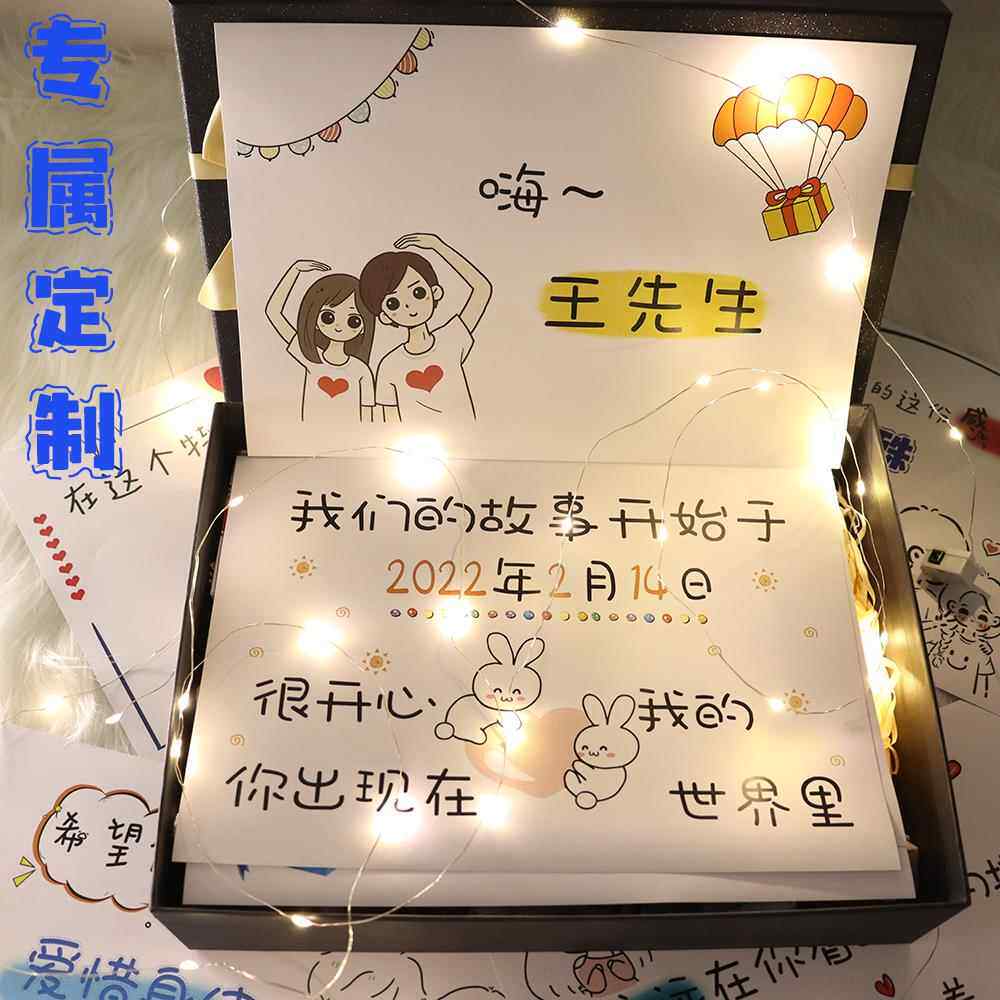 专属定制
嗨～
王先生
我们的故事开始于
2022年2月14日
很开心 我的
你出现在 世界里
在这个特
的这份感
殊
希望
爱惜身体
在你眉